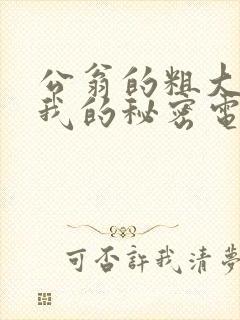 公翁的粗大
我的秘密电
可否许我清梦